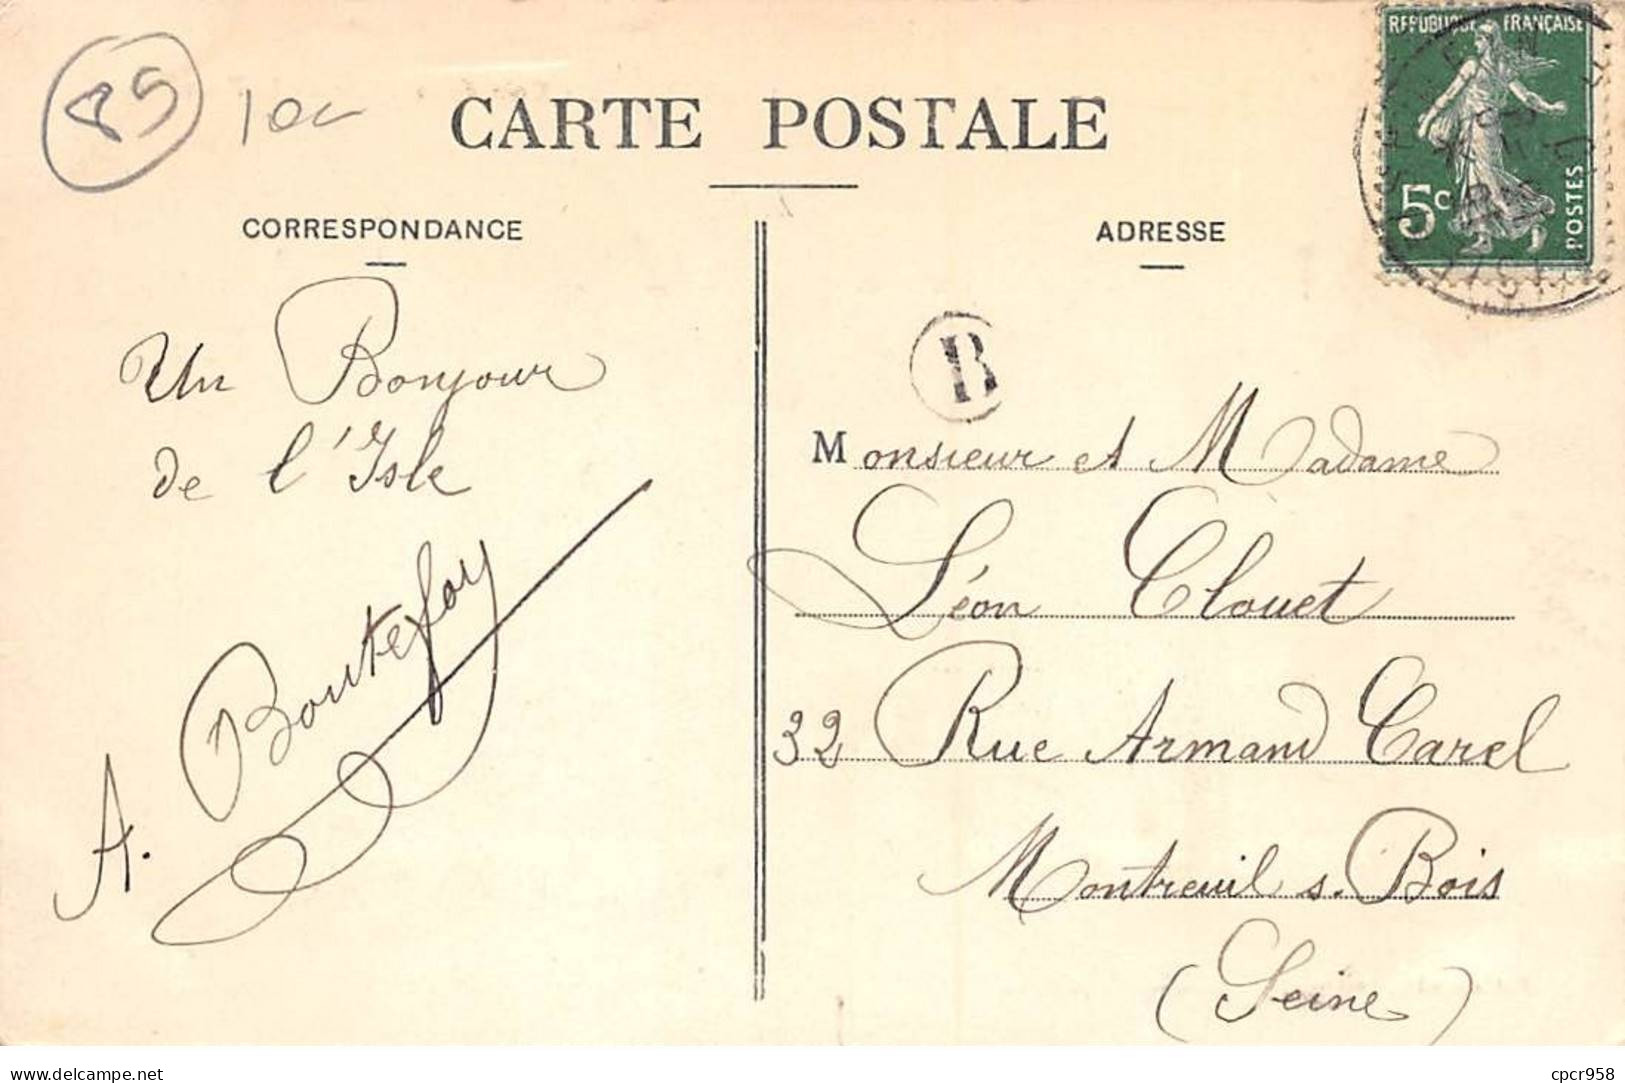 85
10c
CARTE POSTALE
CORRESPONDANCE
ADRESSE
REPUBLIQUE FRANÇAISE
5c
POSTES
B
Un Bonjour
de l'Isle
A. Boutefoy
Monsieur et Madame
Léon Clouet
32 Rue Armand Carel
Montreuil s. Bois
(Seine)
delcampe.net
cpcr958